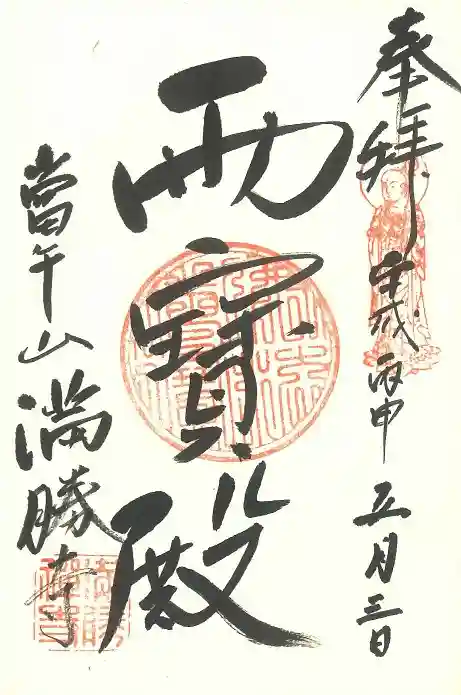 奉拝 平成丙申五月三日
雨寶殿
當午山満勝寺